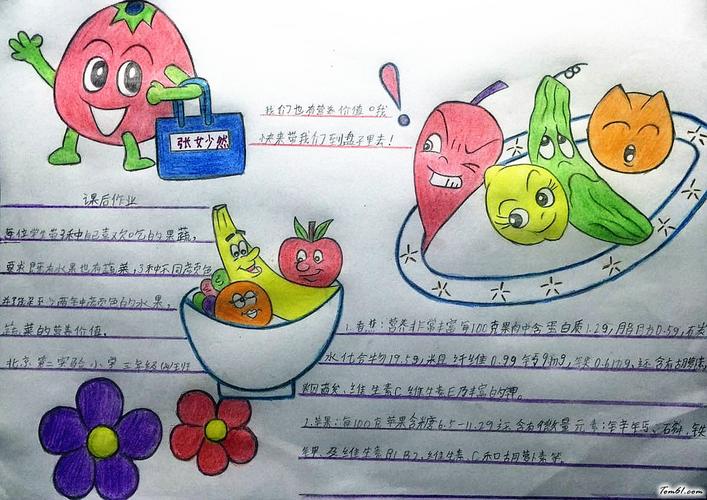 张女少然
我们也有营养价值哦
快来带我们到盘子里去！
课后作业
每位学生带3种自己喜欢吃的果蔬，
要求既有水果也有蔬菜，3种不同颜色
并写至少两种颜色的水果，
蔬菜的营养价值。
北京第二实验小学三年级
1.香蕉：营养非常丰富每100克果肉中含蛋白质1.2g，脂肪0.5g，
水化合物19.5g，粗纤维0.9g 钙9mg，铁0.6mg，还含有胡萝卜素，
维生素C 维生素E及丰富的钾。
2.苹果：每100克苹果含糖6.5-11.2g 还含有微量元素：铁
钾 及维生素B1 B2，维生素C和胡萝卜素等。
Tom61.com